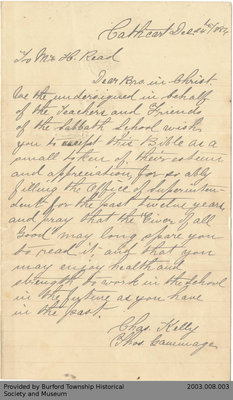 Cathcart Dec 24th 1882
To Mr H. Read
Dear Bro. in Christ
We the undersigned in behalf
of the Teachers and Friends
of the Sabbath School wish
you to accept this Bible as a
small token of their esteem
and appreciation, for so ably
filling the Office of Superinten-
dent for the past twelve years
and may that the Giver of all
Good may long spare you
to read it, and that you
may enjoy health and
strength to work in the School
in the future as you have
in the past.
Chas. Kelly
Provided by Burford Township Historical
Society and Museum
2003.008.003